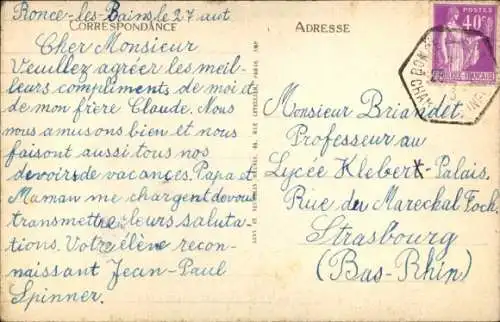 Ronce-les-Bains, le 27 aout
CORRESPONDANCE
Cher Monsieur
Veuillez agréer les meil-
leurs compliments de moi et
de mon frère Claude. Nous
nous amusons bien et nous
faisont aussi tous nos
devoirs de vacances. Papa et
Maman me chargent de vous
transmettre leurs saluta-
tions. Votre élève recon-
naissant Jean-Paul
Spinner.
ADRESSE
Monsieur Briandet.
Professeur au
Lycée Kleber-Palais.
Rue du Marechal Foch
Strasbourg
(Bas-Rhin)
POSTES
40c